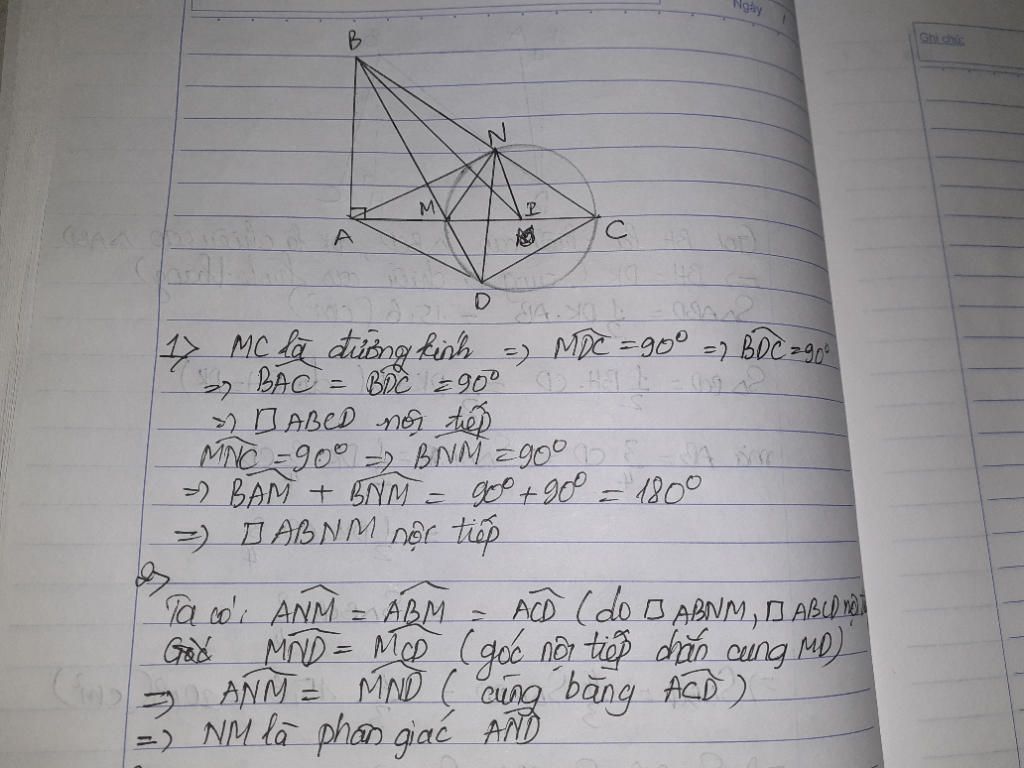 Ngày
Ghi chúc
B
N
A
M
I
C
D
1> MC là đường kính => MDC = 90° => BDC = 90°
=> BAC = BDC = 90°
=> □ABCD nội tiếp
MNC = 90° => BNM = 90°
=> BAM + BNM = 90° + 90° = 180°
=> □ABNM nội tiếp
2>
Ta có: ANM = ABM = ACD (do □ABNM, □ABCD nội
MND = MCD (góc nội tiếp chắn cung MD)
=> ANM = MND (cùng bằng ACD)
=> NM là phân giác AND